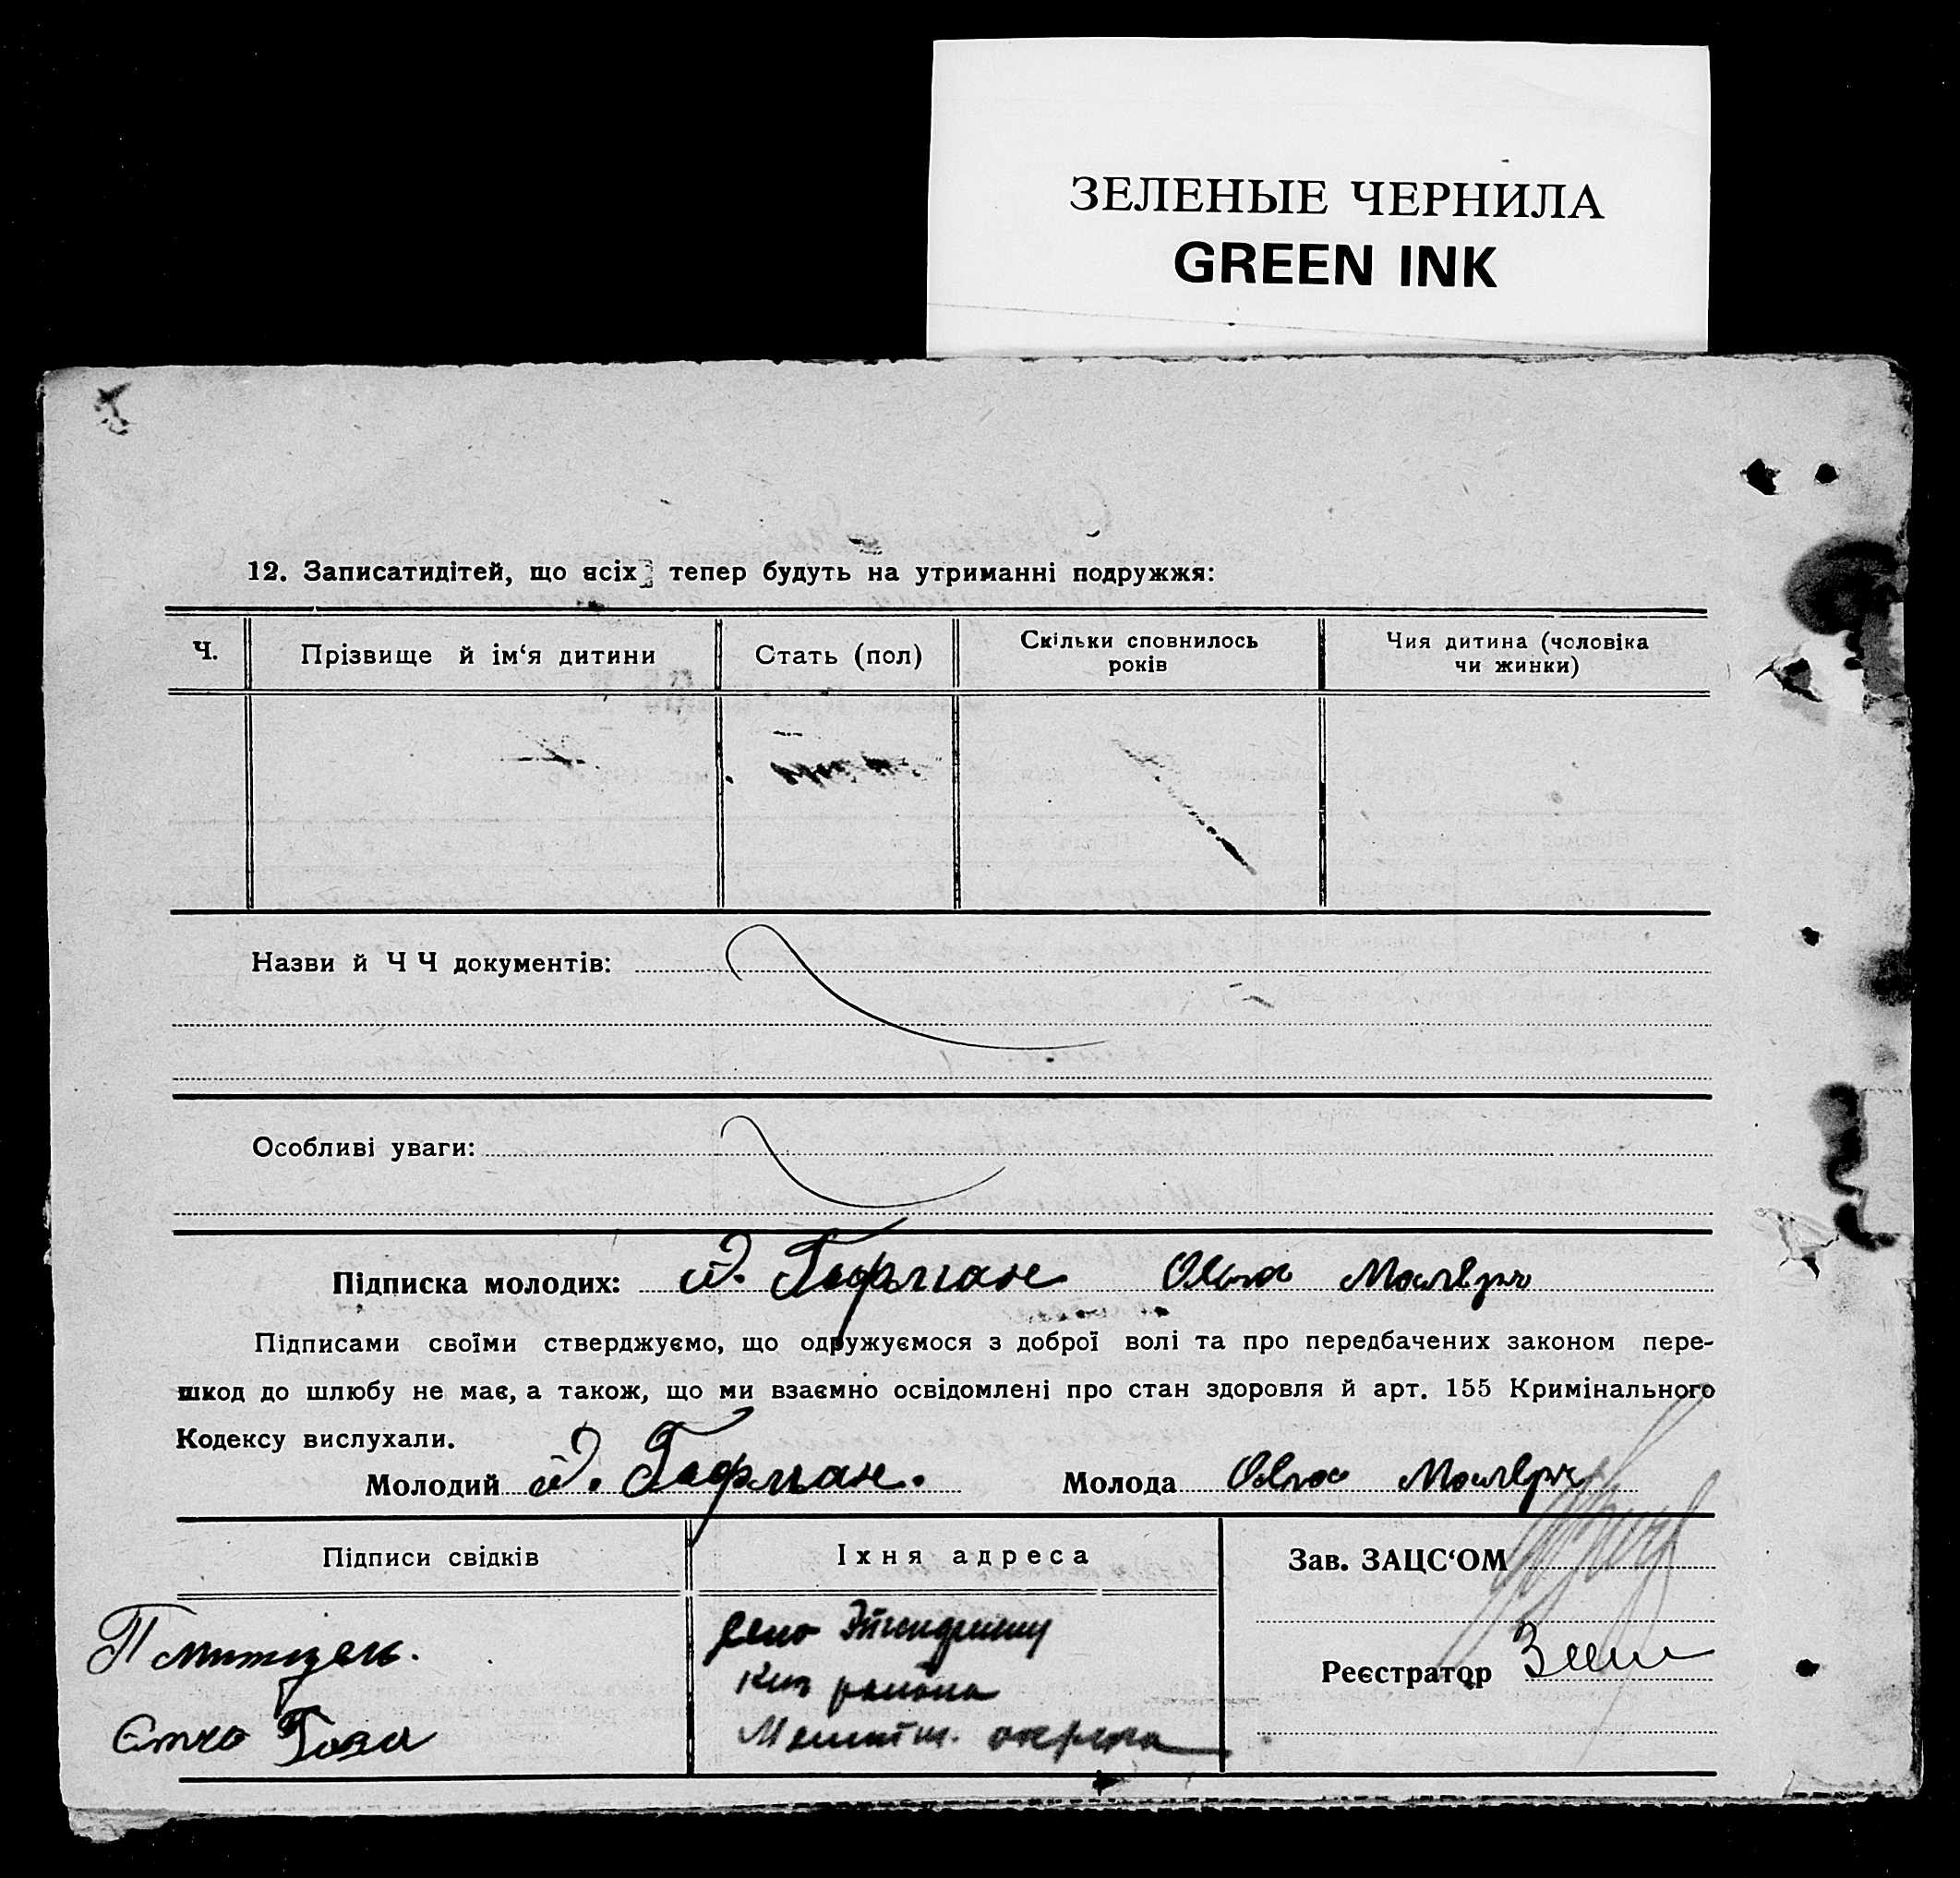 ЗЕЛЕНЫЕ ЧЕРНИЛА
GREEN INK
12. Записатидітей, що всіх тепер будуть на утриманні подружжя:
Ч.
Прізвище й ім‘я дитини
Стать (пол)
Скільки сповнилось
років
Чия дитина (чоловіка
чи жинки)
Назви й Ч Ч документів:
Особливі уваги:
Підписка молодих: Гофман Ольга
Підписами своїми стверджуємо, що одружуємося з доброї волі та про передбачених законом пере-
шкод до шлюбу не має, а також, що ми взаємно освідомлені про стан здоровля й арт. 155 Кримінального
Кодексу вислухали.
Молодий Гофман. Молода Ольга
Підписи свідків
Їхня адреса
Зав. ЗАЦС‘ОМ
района
округа
Реєстратор